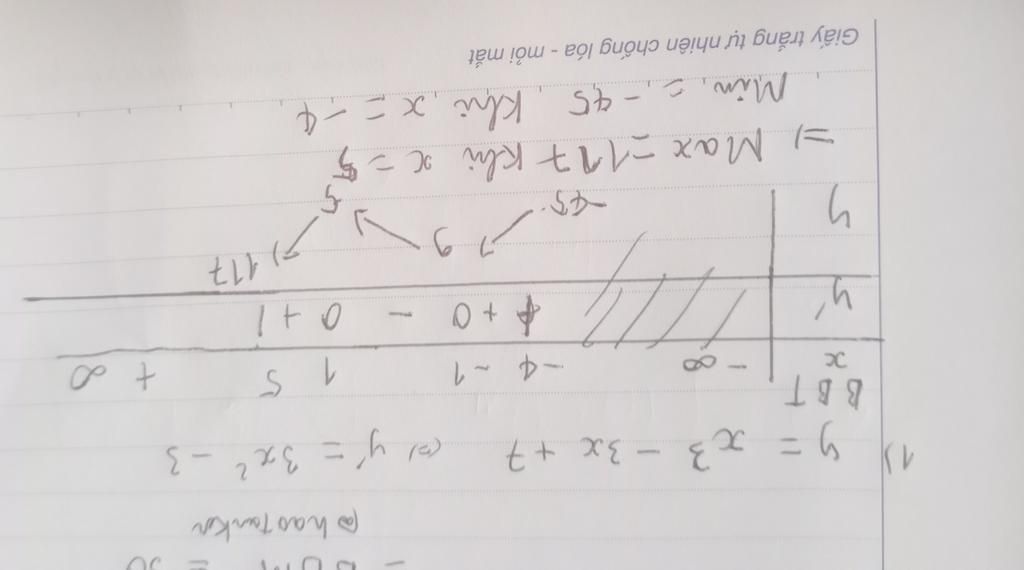 - BDM = 30
@haotanker
1) y = x³ - 3x + 7 (=) y' = 3x² - 3
BBT
x - ∞ - 4 - 1 1 5 + ∞
y' + 0 - 0 + |
y -45 9 5 117
=) Max = 117 khi x = 5
Min = -45 khi x = -4
Giấy trắng tự nhiên chống lóa - mỏi mắt